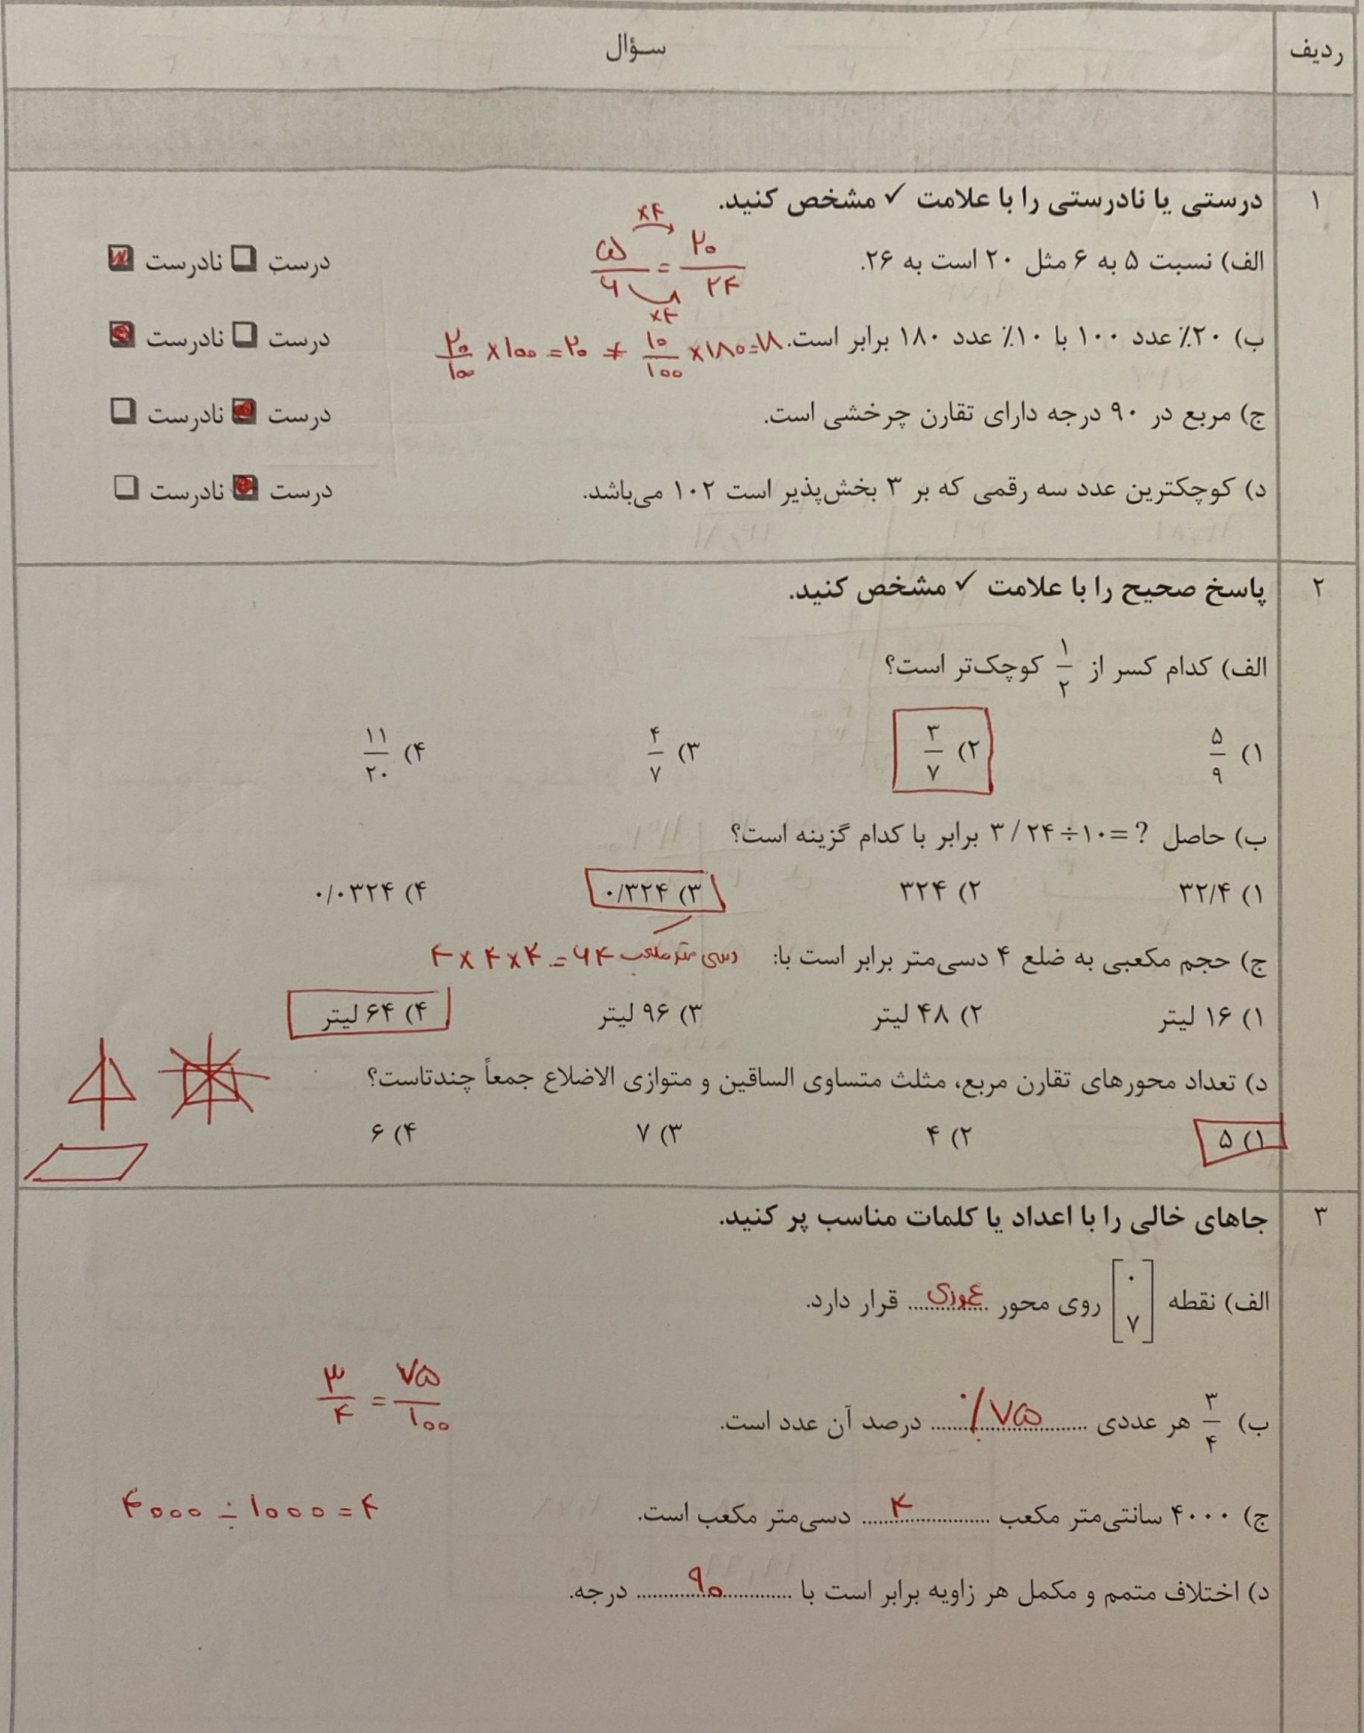 ردیف سؤال
۱ درستی یا نادرستی را با علامت ✓ مشخص کنید.
الف) نسبت ۵ به ۶ مثل ۲۰ است به ۲۶. ×۴ ۵/۶ = ۲۰/۲۴ ×۴ درست نادرست
ب) ۲۰٪ عدد ۱۰۰ با ۱۰٪ عدد ۱۸۰ برابر است. ۲۰/۱۰۰ × ۱۰۰ = ۲۰ ≠ ۱۰/۱۰۰ × ۱۸۰ = ۱۸ درست نادرست
ج) مربع در ۹۰ درجه دارای تقارن چرخشی است. درست نادرست
د) کوچکترین عدد سه رقمی که بر ۳ بخش‌پذیر است ۱۰۲ می‌باشد. درست نادرست
۲ پاسخ صحیح را با علامت ✓ مشخص کنید.
الف) کدام کسر از ۱/۲ کوچک‌تر است؟
۱) ۵/۹ ۲) ۳/۷ ۳) ۴/۷ ۴) ۱۱/۲۰
ب) حاصل ? = ۳/۲۴ ÷ ۱۰ برابر با کدام گزینه است؟
۱) ۳۲/۴ ۲) ۳۲۴ ۳) ۰/۳۲۴ ۴) ۰/۰۳۲۴
ج) حجم مکعبی به ضلع ۴ دسی‌متر برابر است با: ۴ × ۴ × ۴ = ۶۴ دسی متر مکعب
۱) ۱۶ لیتر ۲) ۴۸ لیتر ۳) ۹۶ لیتر ۴) ۶۴ لیتر
د) تعداد محورهای تقارن مربع، مثلث متساوی الساقین و متوازی الاضلاع جمعاً چندتاست؟
۱) ۵ ۲) ۴ ۳) ۷ ۴) ۶
۳ جاهای خالی را با اعداد یا کلمات مناسب پر کنید.
الف) نقطه [۰ ۷] روی محور عمودی قرار دارد.
ب) ۳/۴ هر عددی ۷۵٪ درصد آن عدد است. ۳/۴ = ۷۵/۱۰۰
ج) ۴۰۰۰ سانتی‌متر مکعب ۴ دسی‌متر مکعب است. ۴۰۰۰ ÷ ۱۰۰۰ = ۴
د) اختلاف متمم و مکمل هر زاویه برابر است با ۹۰ درجه.